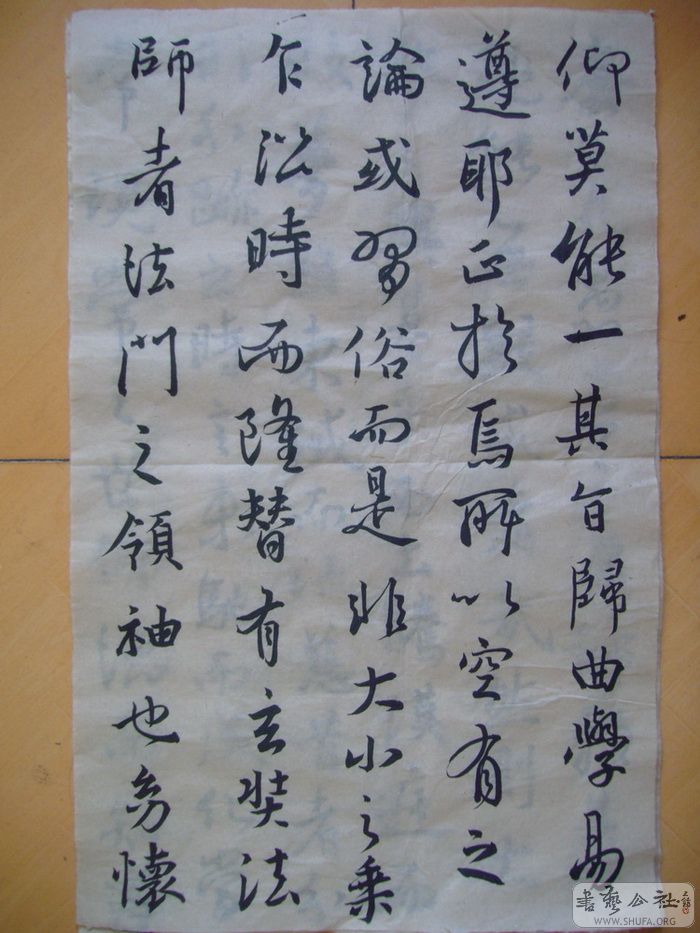 仰莫能一其旨歸曲學易
遵耶正於焉所以空有之
論或習俗而是非大小之乘
乍沿時而隆替有玄奘法
師者法門之領袖也幼懷
書藝公社
WWW.SHUFA.ORG